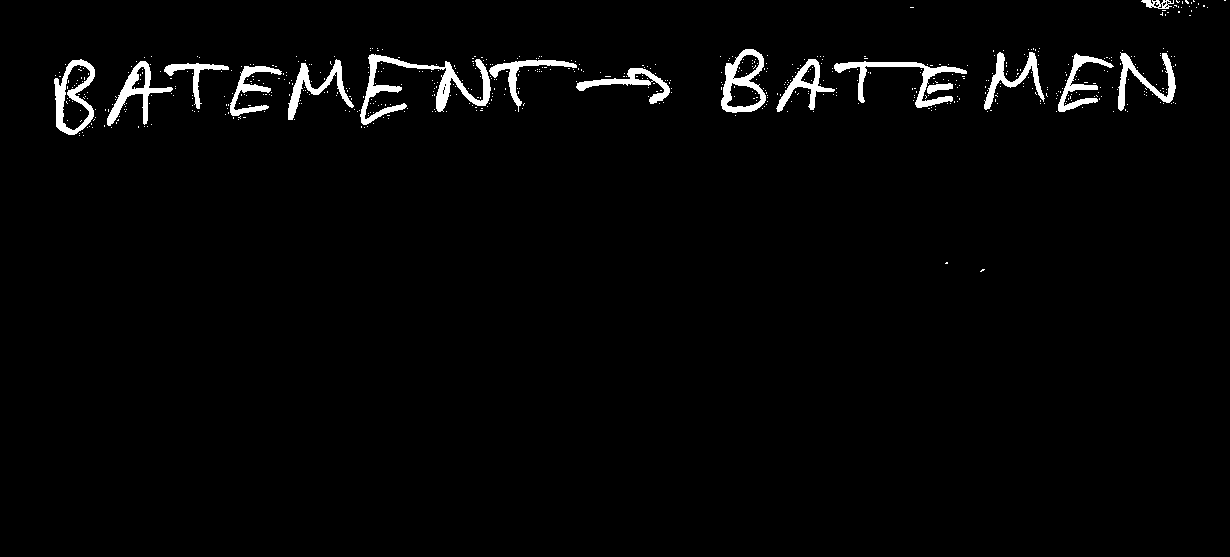 BATEMENT → BATEMEN